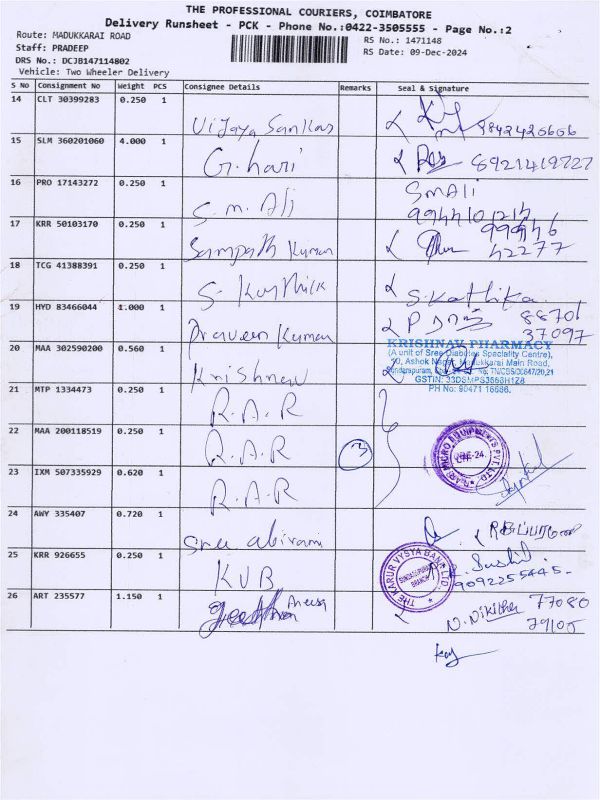 THE PROFESSIONAL COURIERS, COIMBATORE
Delivery Runsheet - PCK - Phone No.:0422-3505555 - Page No.:2
Route: MADUKKARAI ROAD
RS No.: 1471148
Staff: PRADEEP
RS Date: 09-Dec-2024
DRS No.: DCJB147114802
Vehicle: Two Wheeler Delivery
S No Consignment No Weight PCS Consignee Details Remarks Seal & Signature
14 CLT 30399283 0.250 1 Vijaya Sankar 9842426606
15 SLM 360201060 4.000 1 G. hari 8921419727
16 PRO 17143272 0.250 1 S. m. Ali SMAli
17 KRR 50103170 0.250 1 Sampath Kumar 42277
18 TCG 41388391 0.250 1 S. Karthick S. Kathika
19 HYD 83466044 1.000 1 Praveen Kumar 88701
37097
20 MAA 302590200 0.560 1 Krishnav
KRISHNAV PHARMACY
(A unit of Sree Diabetes Speciality Centre),
Madukkarai Main Road,
PH No: 90471 16686.
21 MTP 1334473 0.250 1 R.A.R
22 MAA 200118519 0.250 1 R.A.R 3
23 IXM 507335929 0.620 1 R.A.R
24 AWY 335407 0.720 1 Sree abirami
25 KRR 926655 0.250 1 KVB Sushil
9092255445
THE KARUR VYSYA BANK LTD.
BRANCH
26 ART 235577 1.150 1 N. Nikitha 77080
79105